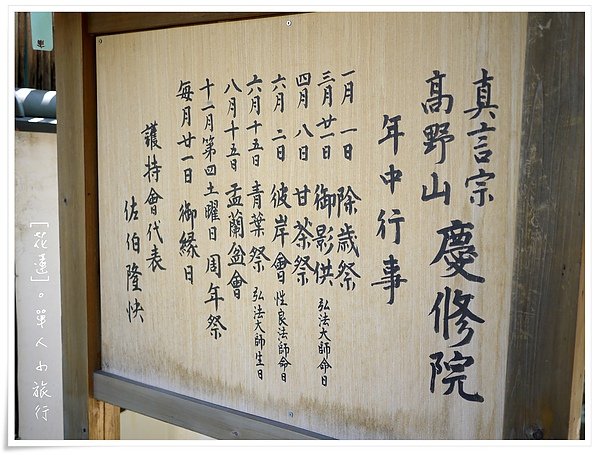 真言宗
高野山 慶修院
年中行事
一月 一日 除歳祭
三月廿一日 御影供 弘法大師命日
四月 八日 甘茶祭
六月 二日 彼岸會 性良法師命日
六月十五日 青葉祭 弘法大師生日
八月十五日 盂蘭盆會
十一月第四土曜日 周年祭
每月廿一日 御縁日
護持會代表
佐伯隆快
[花蓮]。單人小旅行